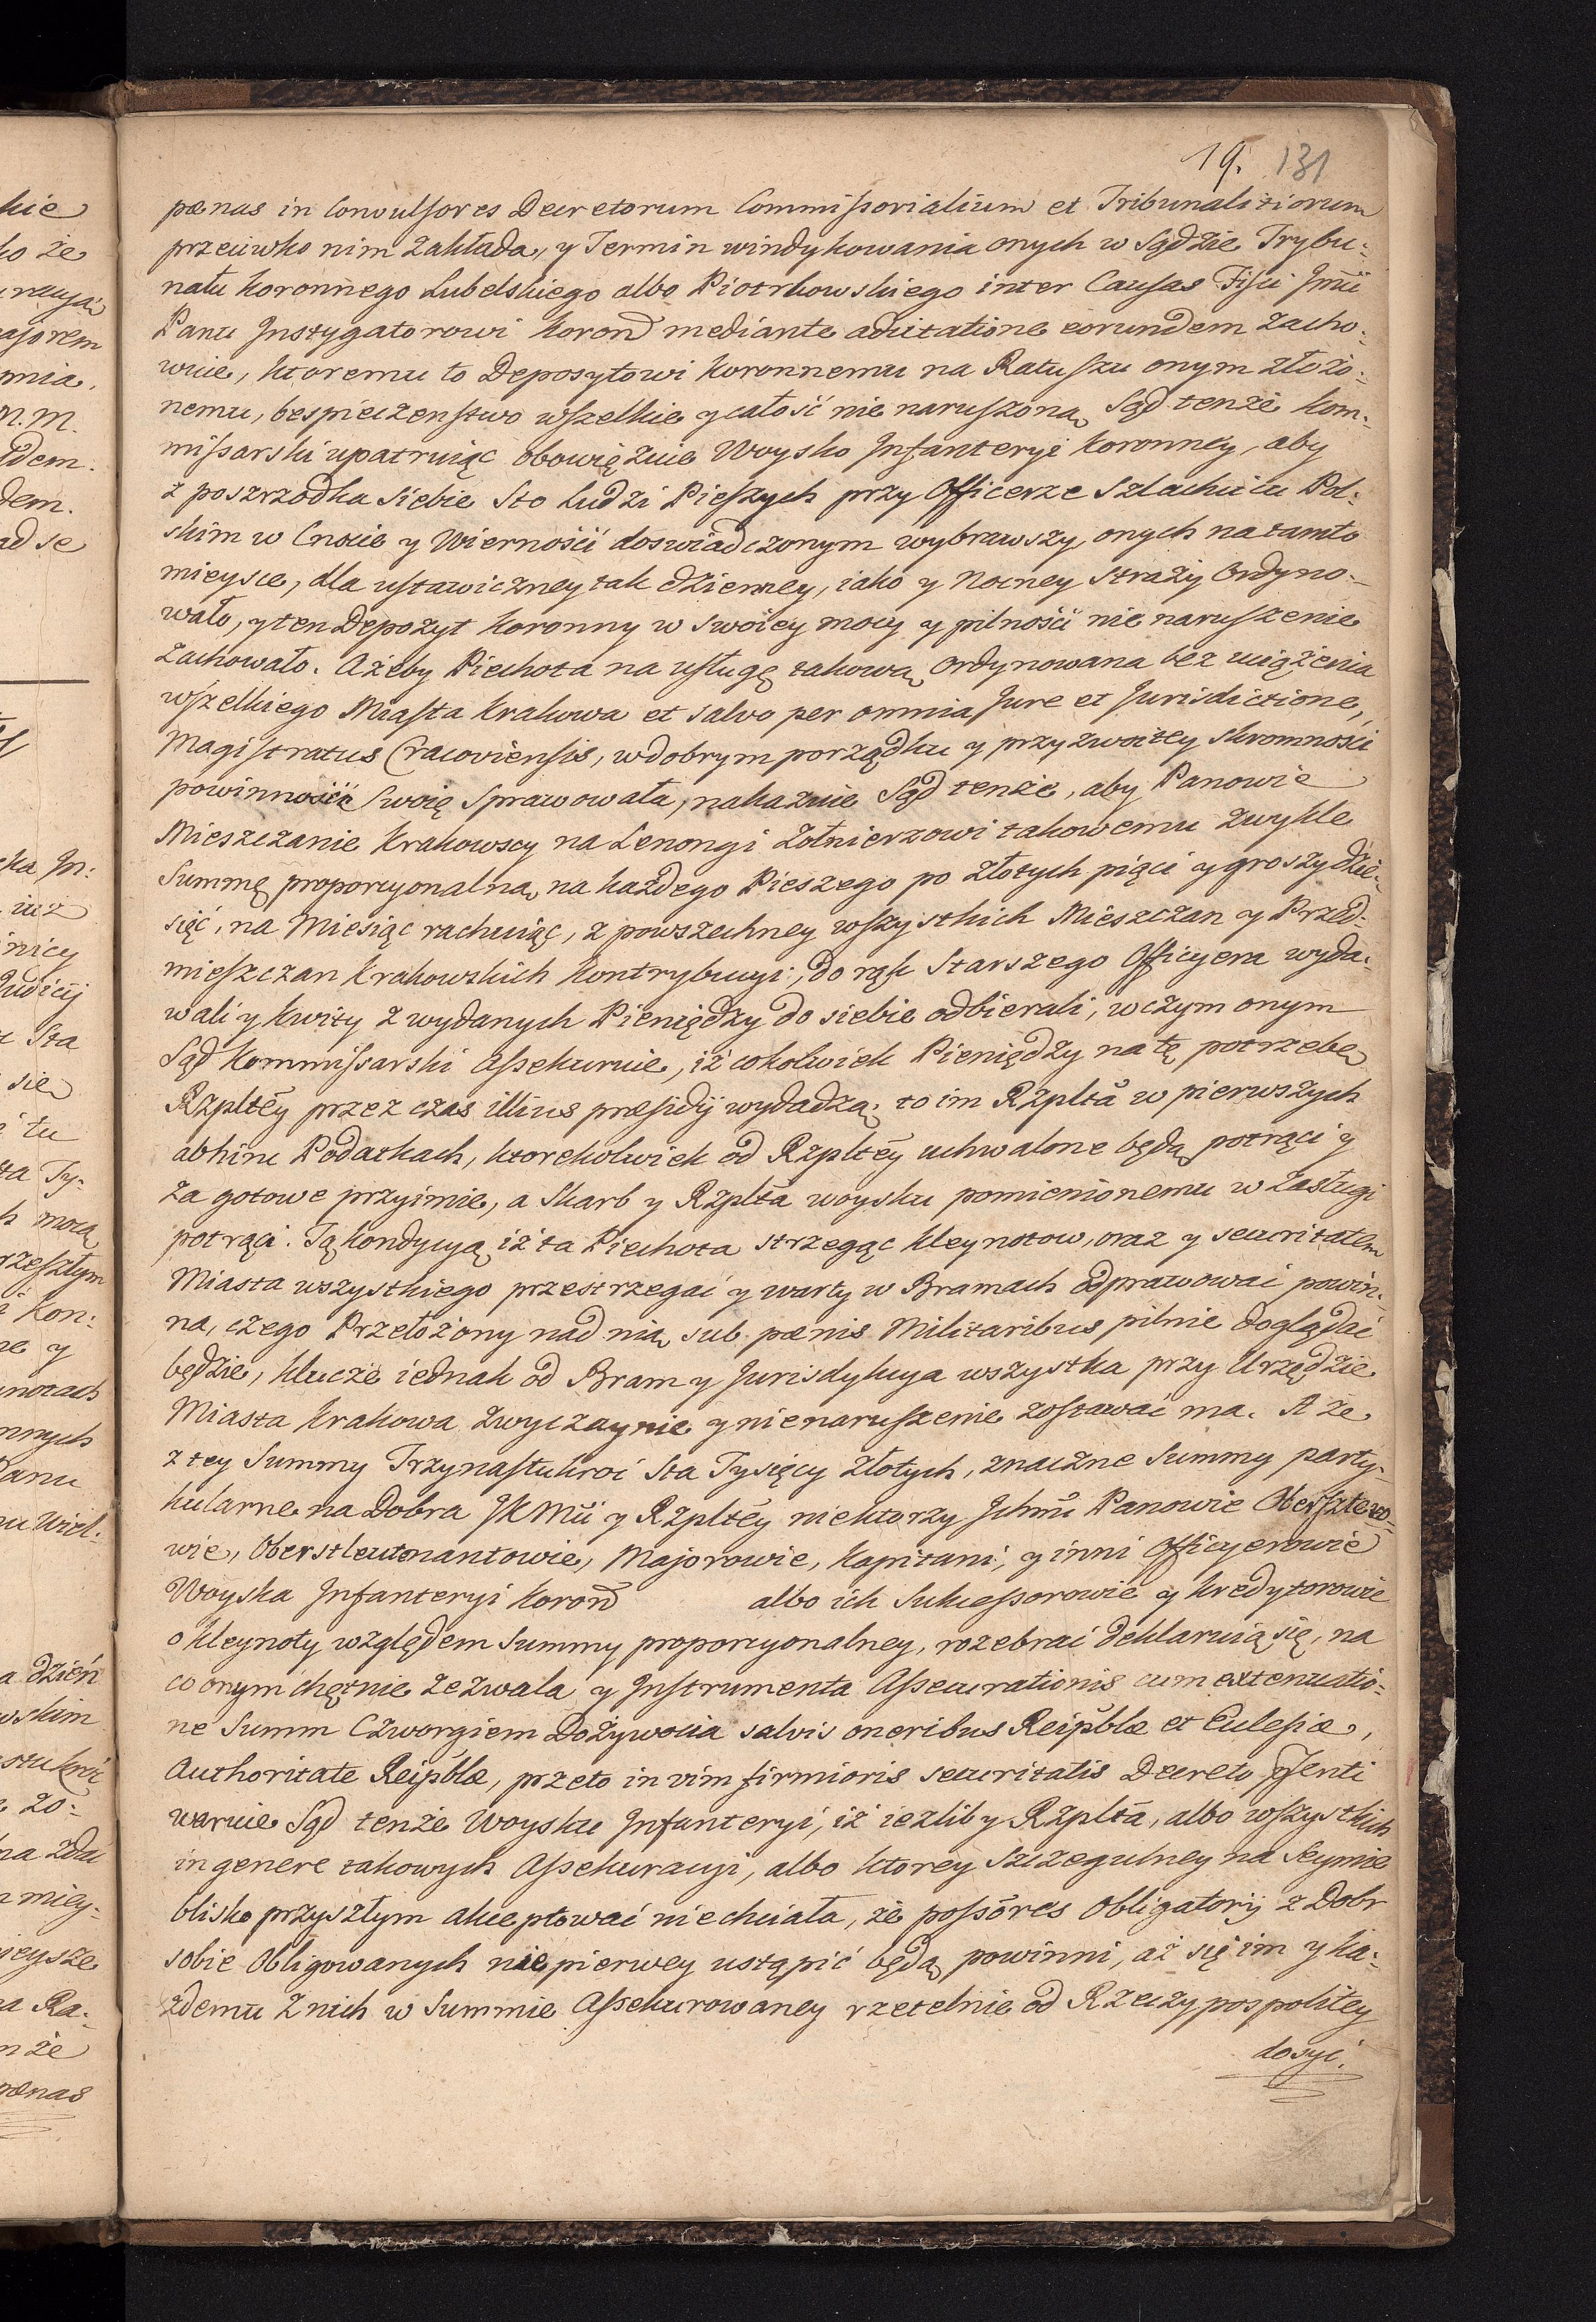 19. 131
pœnas in Convulsores Decretorum Commissorialium et Tribunalitiorum
przeciwko nim zakłada, y Termin windykowania onych w Sądzie Trybu-
nału Koronnego Lubelskiego albo Piotrkowskiego inter Causas Fisci Jmći
Panu Instygatorowi Koron mediante adcitatione eorundem zacho-
wuie, ktoremu to Depozytowi Koronnemu na Ratuszu onym złożo-
nemu, bespieczenstwo wszelkie y całość nie naruszoną Sąd tenże Kom-
missarski upatruiąc obowiązuie Woysko Infanteryi Koronney, aby
z poszrzodka siebie Sto ludzi Pieszych przy Officerze Szlachcicu Pol-
skim w Cnocie y Wierności doswiadczonym wybrawszy, onych na tamto
mieysce, dla ustawiczney tak dzienney, iako y Nocney straży Ordyno-
wało, y ten Depozyt Koronny w swoiey mocy y pilności nie naruszenie
zachowało. Ażeby Piechota na usługę takową Ordynowana bez uciążenia
wszelkiego Miasta Krakowa et salvo per omnia Jure et Jurisdictione,
Magistratus Cracoviensis, w dobrym porządku y przyzwoitey skromności
powinność Swoię Sprawowała, nakazuie Sąd tenże, aby Panowie
Mieszczanie Krakowscy na Lenongi Zołnierzowi takowemu zwykle
Summę proporcyonalną na każdego Pieszego po złotych pięci y groszy dzie-
sięć, na Miesiąc rachuiąc, z powszechney wszystkich Mieszczan y Przed-
mieszczan Krakowskich Kontrybucyi, do rąk Starszego Officyera wyda-
wali y kwity z wydanych Pieniędzy do siebie odbierali, w czym onym
Sąd Kommissarski Assekuruie, iż cokolwiek Pieniędzy na tę potrzebę
Rzpltey przez czas illius præsidij wydadzą, to im Rzplta w pierwszych
abhinc Podatkach, ktorekolwiek od Rzpltey uchwalone będą, potrąci y
za gotowe przyimie, a Skarb y Rzplta woysku pomienionemu w Zasługi
potrąci. Tą kondycyą, iż ta Piechota strzegąc kleynotow, oraz y securitatem
Miasta wszystkiego przestrzegać y warty w Bramach odprawować powin-
na, czego Przełożony nad nią sub pœnis Militaribus pilnie doglądać
będzie, klucze iednak od Bram y Jurisdykcya wszystka przy Urzędzie
Miasta Krakowa zwyczaynie y nienaruszenie zostawać ma. A że
z tey Summy Trzynastukroć Sta Tysięcy złotych, znaczne Summy party-
kularne na Dobra JKMći y Rzpltey niektorzy Jchmć Panowie Obersztero-
wie, Oberstleutenantowie, Majorowie, Kapitani, y inni Officyerowie
Woyska Infanteryi Koron albo ich Sukcessorowie y Kredytorowie
o kleynoty względem Summy proporcyonalney, rozebrać deklaruią się, na
co onym chętnie zezwala y Instrumenta Assecurationis cum extenuatio-
ne Summ Czworgiem Dożywocia salvis oneribus Reipblæ et Eclesiæ,
Authoritate Reipblæ, przeto in vim firmioris securitatis Decreto psenti
waruie Sąd tenże Woysku Infanteryi, iż iezliby Rzplta, albo wszystkich
in genere takowych Assekuracyi, albo ktorey szczegulney na Seymie
blisko przyszłym akceptować niechciała, że possores Obligatorij z Dobr
sobie Obligowanych nie pierwey ustąpić będą powinni, aż się im y ka-
żdemu z nich w Summie Assekurowaney rzetelnie od Rzeczypospolitey
dosyć.